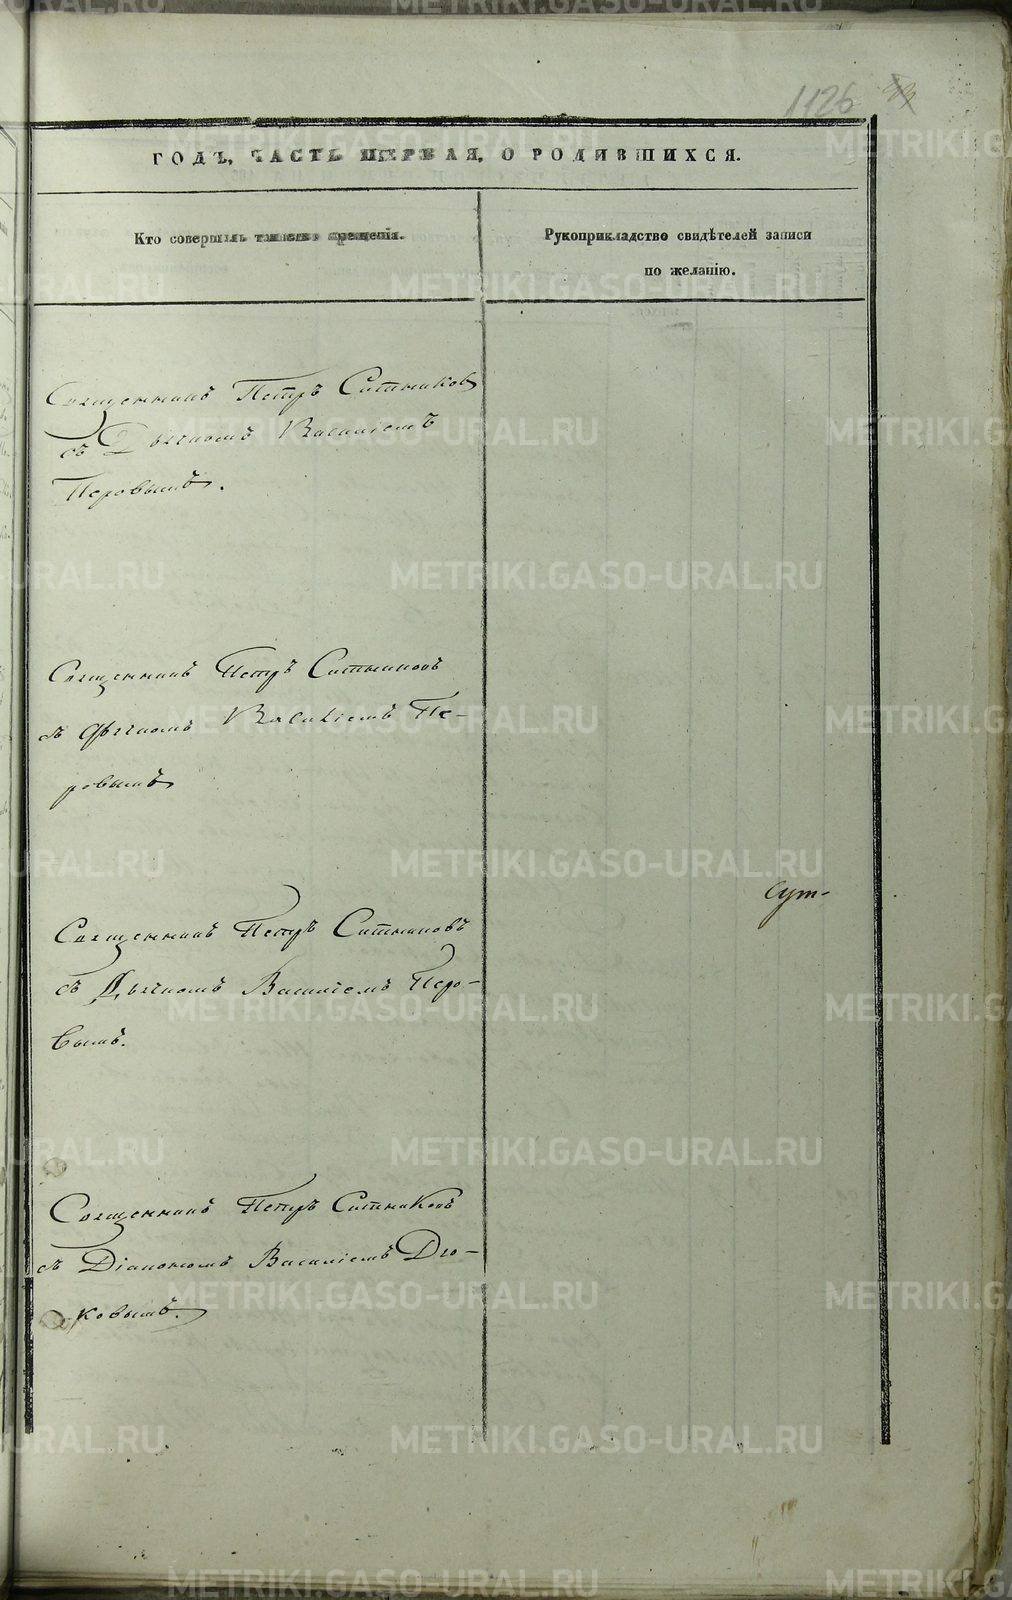 1126
ГОДЪ, ЧАСТЬ ПЕРВАЯ, О РОДИВШИХСЯ.
Кто совершилъ таинство крещенія.
Рукоприкладство свидѣтелей записи
по желанію.
Священникъ Петръ Ситников
съ Дьячкомъ Василіемъ
Перовымъ.
Священникъ Петръ Ситниковъ
съ Дьячкомъ Василіемъ Пе-
ровымъ
Сут-
Священникъ Петръ Ситниковъ
съ Дьячкомъ Василіемъ Перо-
вымъ.
Священникъ Петръ Ситниковъ
съ Діакономъ Василіемъ
ковымъ.
METRIKI.GASO-URAL.RU